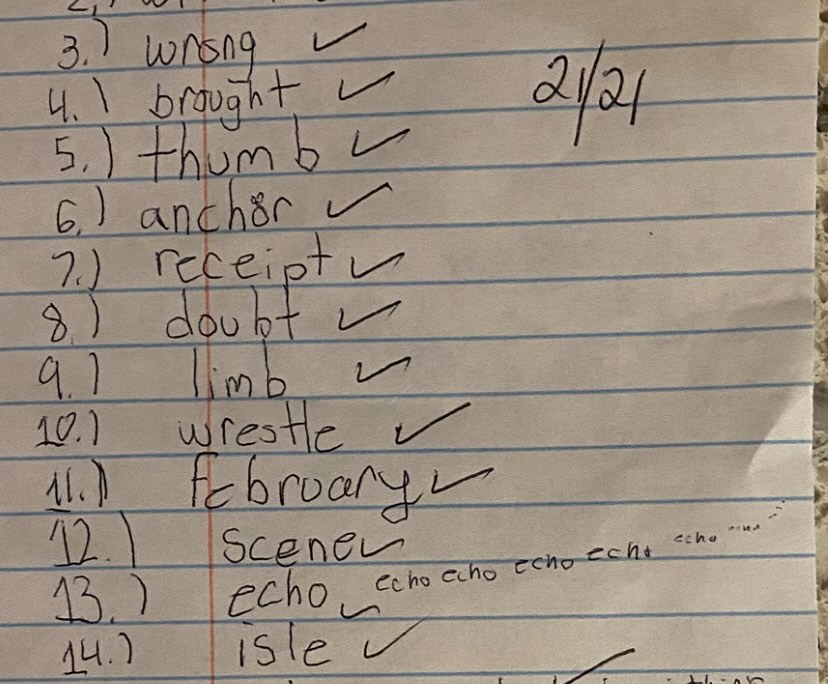 3.) wrong ✓
21/21
4.) brought ✓
5.) thumb ✓
6.) anchor ✓
7.) receipt ✓
8.) doubt ✓
9.) limb ✓
10.) wrestle ✓
11.) february ✓
12.) scene ✓
13.) echo ✓ echo echo echo echo echo
14.) isle ✓